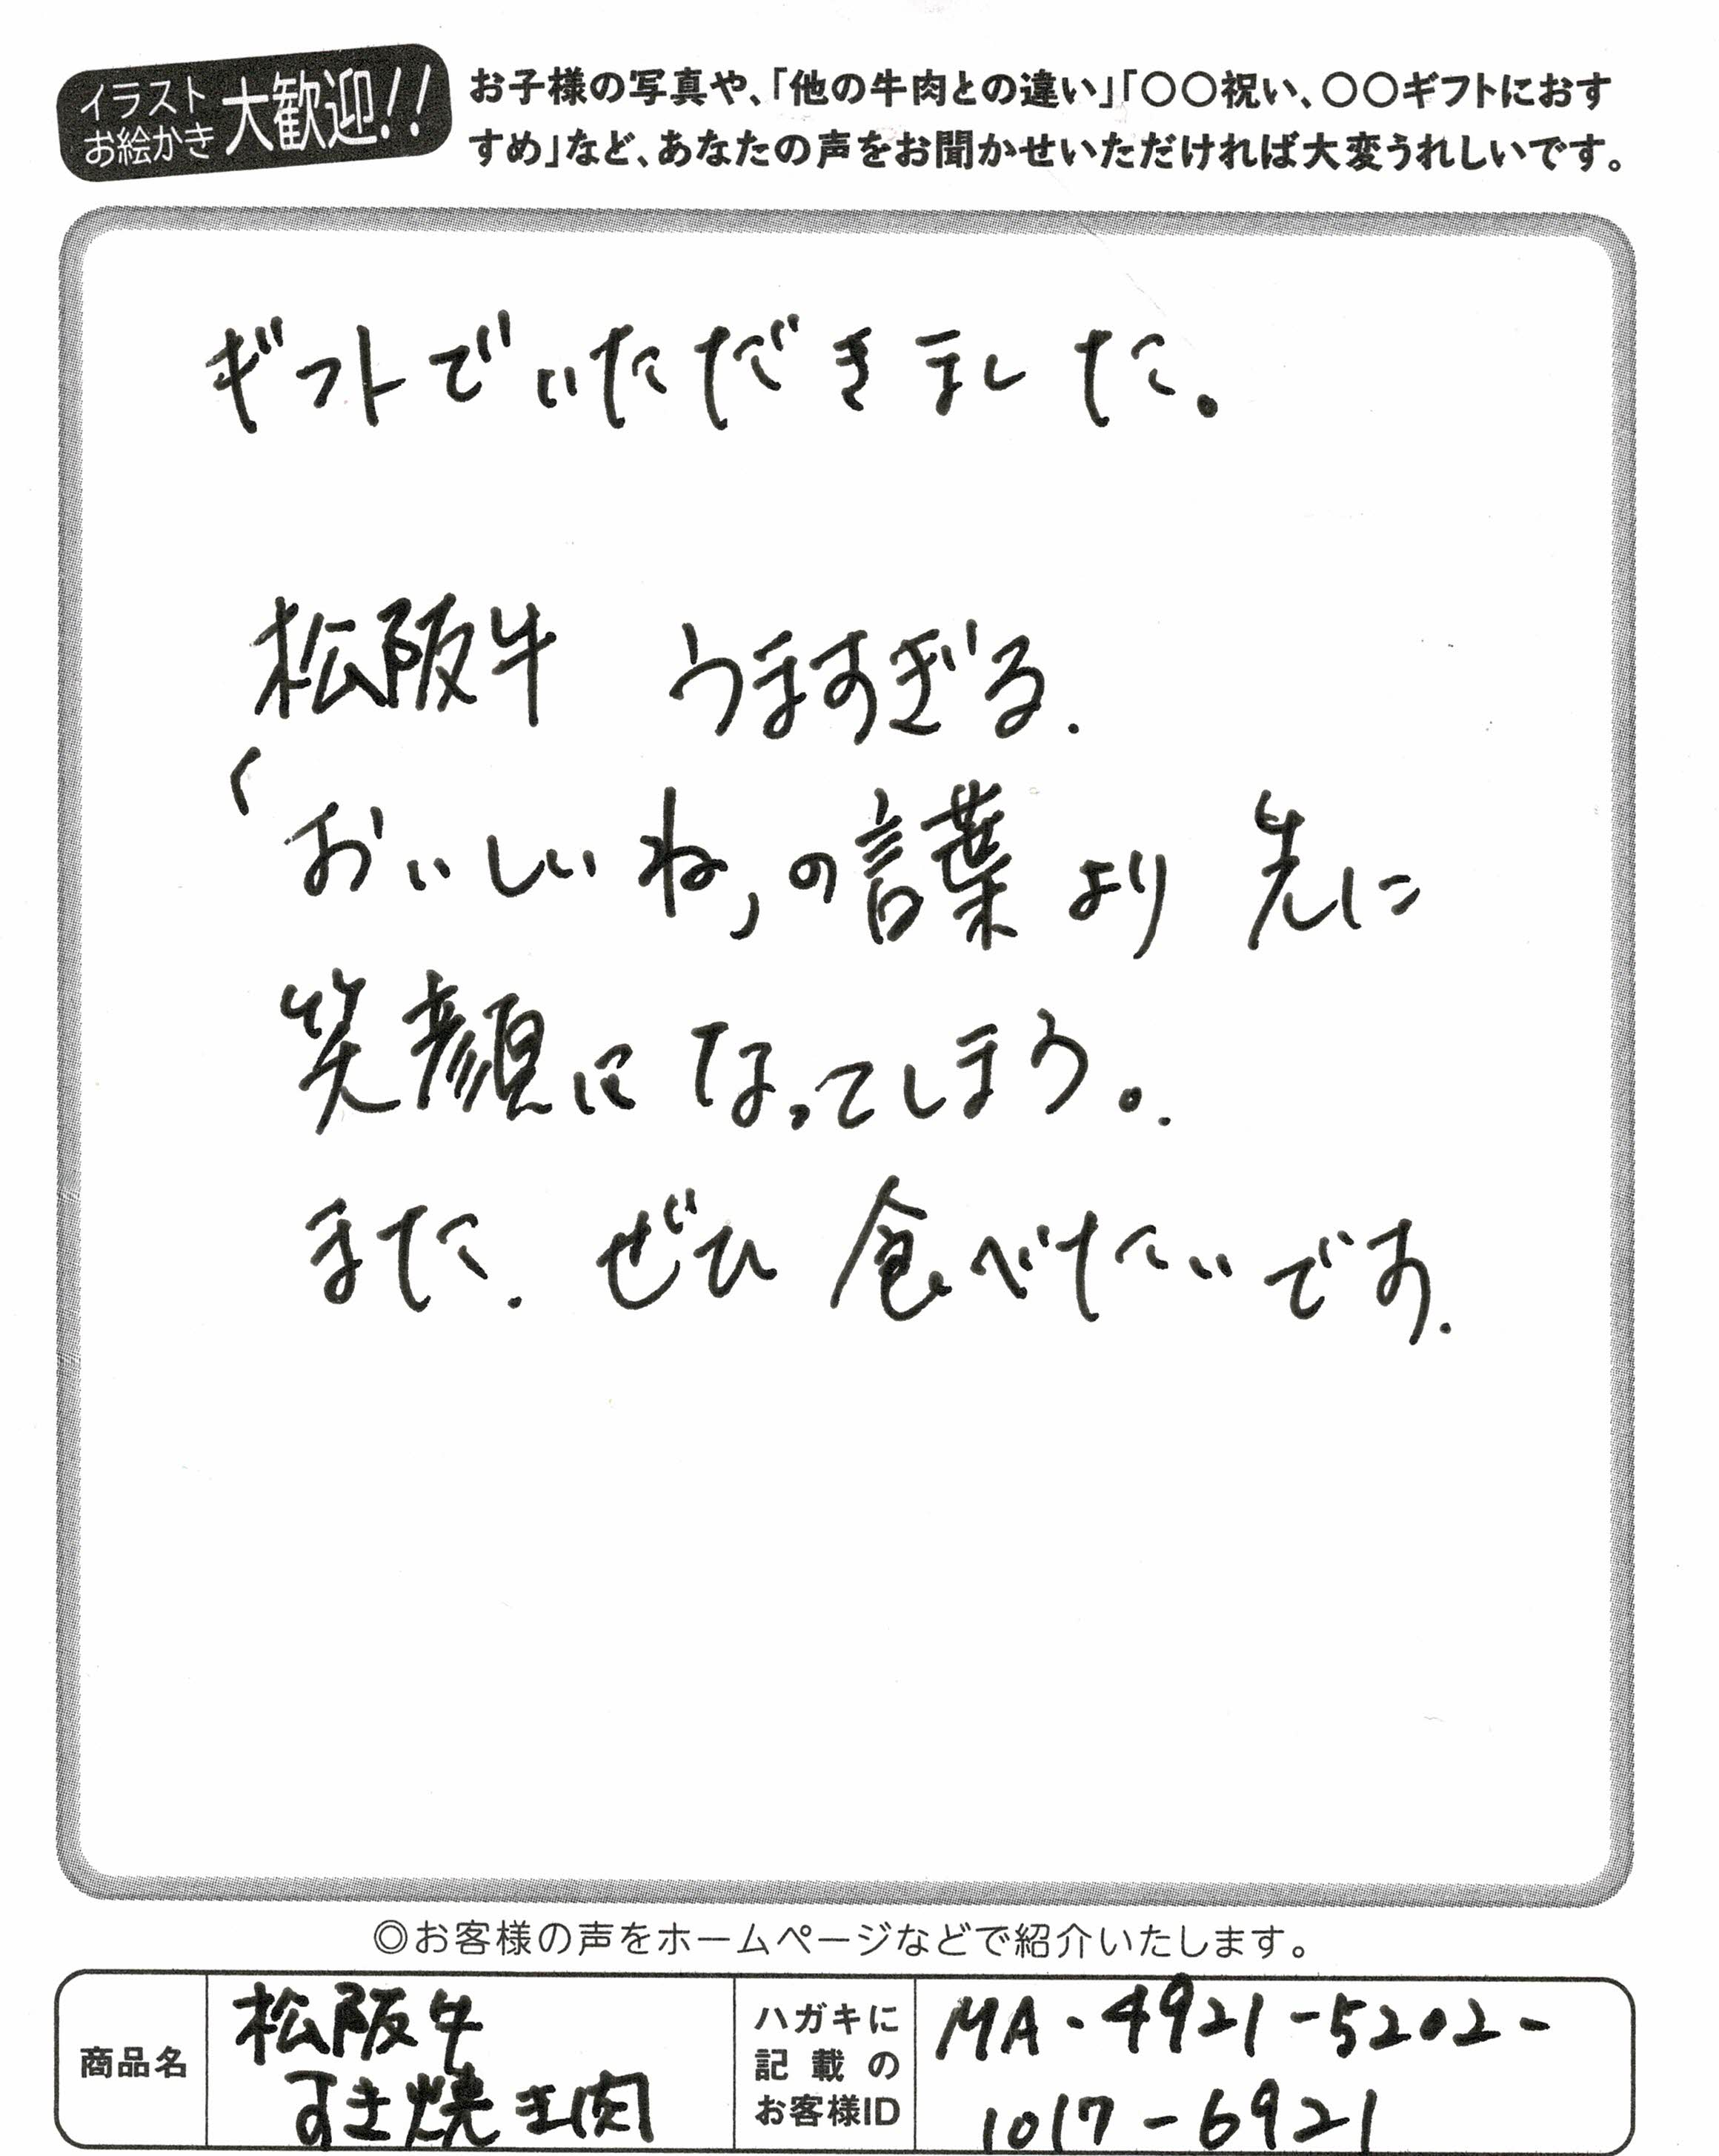 イラスト
お絵かき
大歓迎!!
お子様の写真や、「他の牛肉との違い」「〇〇祝い、〇〇ギフトにおす
すめ」など、あなたの声をお聞かせいただければ大変うれしいです。
ギフトでいただきました。
松阪牛 うますぎる.
「おいしいね」の言葉より先に
笑顔になってしまう。.
また. ぜひ 食べたいです.
◎お客様の声をホームページなどで紹介いたします。
商品名
松阪牛
すき焼き肉
ハガキに
記載の
お客様ID
MA-4921-5202-
1017-6921